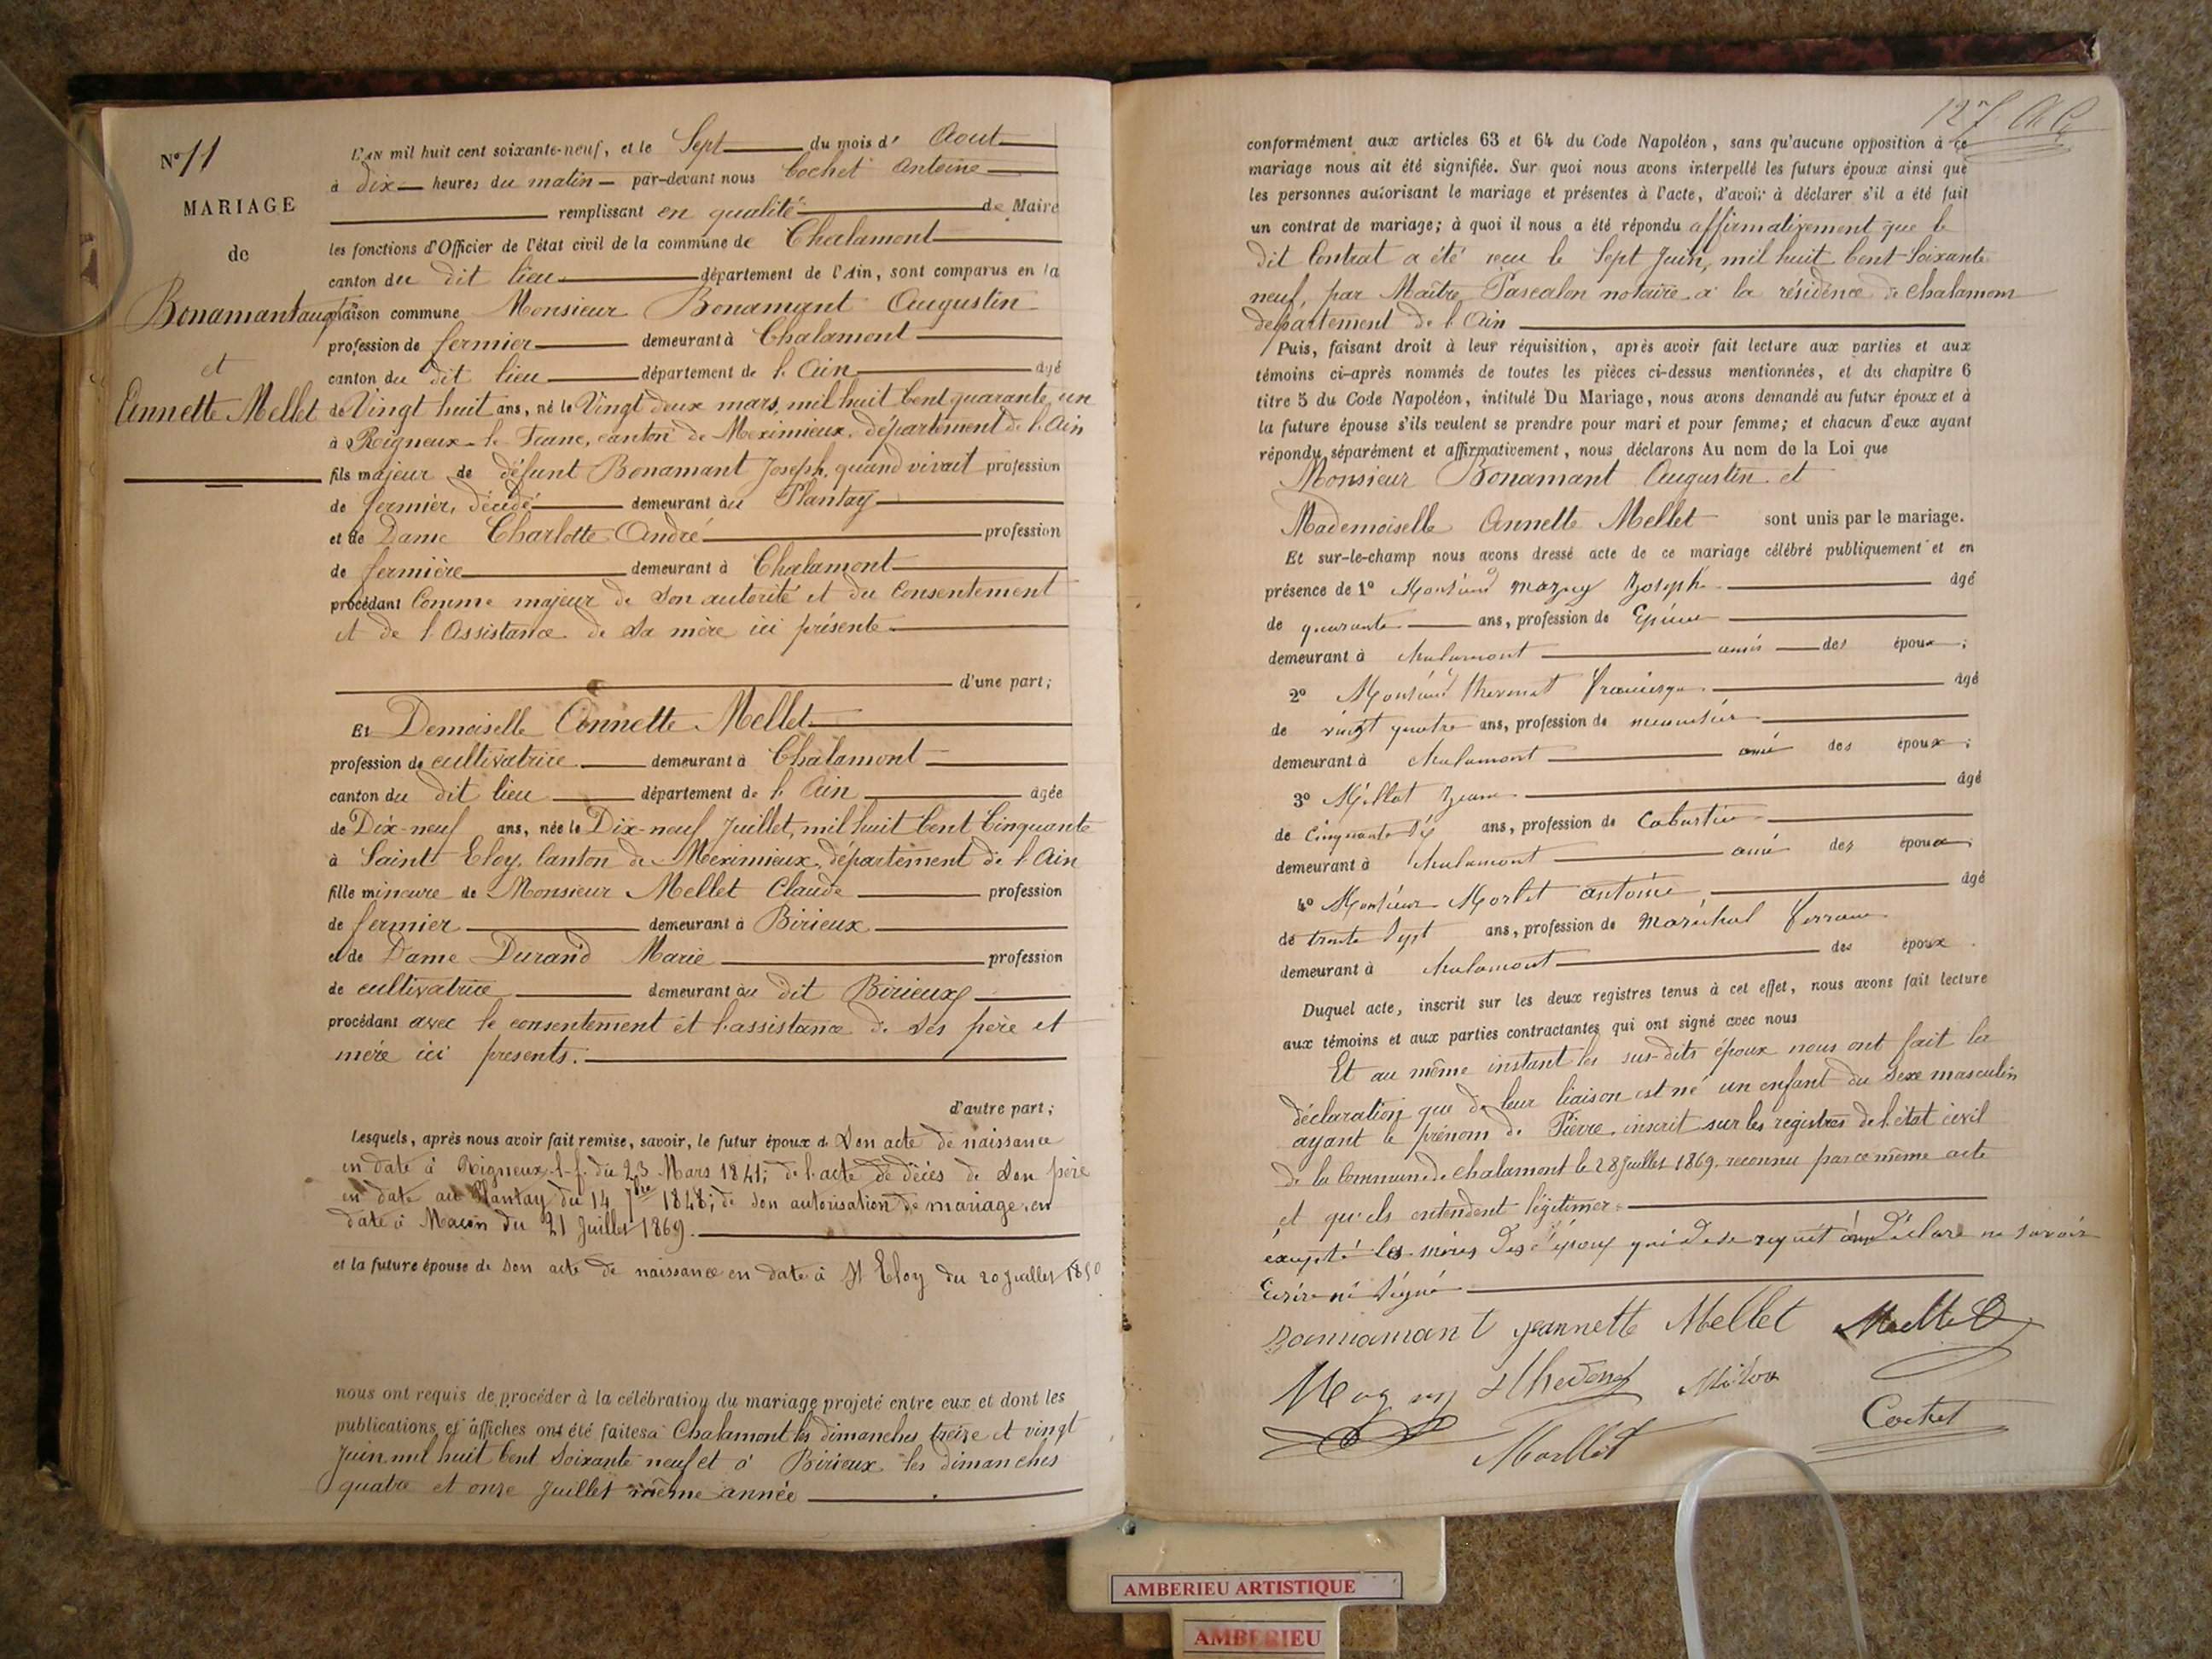 N° 11
MARIAGE
de
Bonamant aug
et
Annette Mellet
L'AN mil huit cent soixante-neuf, et le Sept du mois d' Aout
à dix heures du matin par-devant nous Cochet Antoine
remplissant en qualité de Maire
les fonctions d'Officier de l'état civil de la commune de Chalamont
canton du dit lieu département de l'Ain, sont comparus en la
maison commune Monsieur Bonamant Augustin
profession de fermier demeurant à Chalamont
canton du dit lieu département de l'Ain âgé
de Vingt huit ans, né le Vingt deux mars, mil huit Cent quarante un
à Rigneux-le-Franc, canton de Meximieux, département de l'Ain
fils majeur de défunt Bonamant Joseph, quand vivait profession
de fermier, décédé demeurant au Plantay
et de Dame Charlotte André profession
de fermière demeurant à Chalamont
procédant Comme majeur de son autorité et du Consentement
et de l'Assistance de sa mère ici présente
d'une part;
Et Demoiselle Annette Mellet
profession de cultivatrice demeurant à Chalamont
canton du dit lieu département de l'Ain âgée
de Dix-neuf ans, née le Dix-neuf Juillet, mil huit Cent Cinquante
à Saint Eloy, Canton de Meximieux, département de l'Ain
fille mineure de Monsieur Mellet Claude profession
de fermier demeurant à Birieux
et de Dame Durand Marie profession
de cultivatrice demeurant au dit Birieux
procédant avec le consentement et l'assistance de ses père et
mère ici présents.
d'autre part;
Lesquels, après nous avoir fait remise, savoir, le futur époux de Son acte de naissance
en date à Rigneux-l-f. du 23 Mars 1841; de l'acte de décès de Son père
en date au Plantay du 14 7bre 1848; de son autorisation de mariage en
date à Macon du 21 Juillet 1869.
et la future épouse de Son acte de naissance en date à St Eloy du 20 Juillet 1850
nous ont requis de procéder à la célébration du mariage projeté entre eux et dont les
publications et affiches ont été faites à Chalamont les dimanches treize et vingt
Juin mil huit Cent Soixante neuf et à Birieux les dimanches
quatre et onze Juillet même année
127
conformément aux articles 63 et 64 du Code Napoléon, sans qu'aucune opposition à ce
mariage nous ait été signifiée. Sur quoi nous avons interpellé les futurs époux ainsi que
les personnes autorisant le mariage et présentes à l'acte, d'avoir à déclarer s'il a été fait
un contrat de mariage; à quoi il nous a été répondu affirmativement que le
dit Contrat a été reçu le Sept Juin, mil huit Cent Soixante
neuf, par Maître Pascalon notaire à la résidence de Chalamont
département de l'Ain
Puis, faisant droit à leur réquisition, après avoir fait lecture aux parties et aux
témoins ci-après nommés de toutes les pièces ci-dessus mentionnées, et du chapitre 6
titre 5 du Code Napoléon, intitulé Du Mariage, nous avons demandé au futur époux et à
la future épouse s'ils veulent se prendre pour mari et pour femme; et chacun d'eux ayant
répondu séparément et affirmativement, nous déclarons Au nom de la Loi que
Monsieur Bonamant Augustin et
Mademoiselle Annette Mellet sont unis par le mariage.
Et sur-le-champ nous avons dressé acte de ce mariage célébré publiquement et en
présence de 1° Monsieur Mazuy Joseph âgé
de quarante ans, profession de Epicier
demeurant à chalamont amis des époux;
2° Monsieur thevenet francisque âgé
de vingt quatre ans, profession de menuisier
demeurant à chalamont ami des époux;
3° Mellet Jean âgé
de Cinquante Six ans, profession de Cabartier
demeurant à chalamont ami des époux;
4° Monsieur Morlet antoine âgé
de trente Sept ans, profession de Maréchal
demeurant à chalamont des époux.
Duquel acte, inscrit sur les deux registres tenus à cet effet, nous avons fait lecture
aux témoins et aux parties contractantes qui ont signé avec nous
Et au même instant les sus-dits époux nous ont fait la
déclaration que de leur liaison est né un enfant du Sexe masculin
ayant le prénom de Pierre, inscrit sur les registres de l'état civil
de la Commune de Chalamont le 28 Juillet 1869. reconnu par ce même acte
et qu'ils entendent légitimer.
excepté les mères des époux qui de ce requit ont Déclaré ne savoir
Ecrire ni Signé
Bonnamant Jeannette Mellet Mellet
Mazuy Thevenet
Cochet
Morllet
AMBERIEU ARTISTIQUE
AMBERIEU